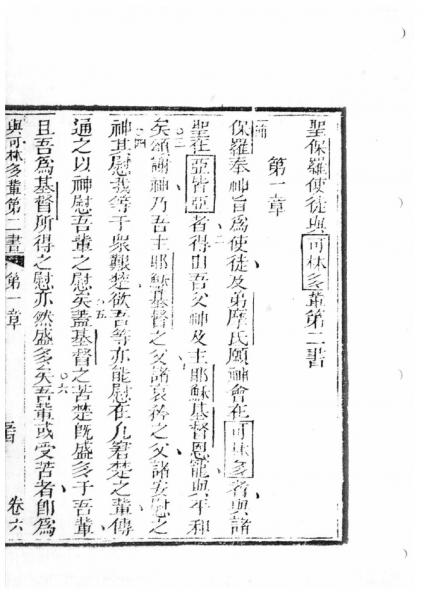 聖保羅使徒與可林多輩第二書
第一章
保羅奉神旨為使徒及弟摩氏願神會在可林多者與諸
聖在亞皆亞者得由吾父神及主耶穌基督恩寵與平和
矣頌謝神乃吾主耶穌基督之父諸哀矜之父諸安慰之
神其慰我等于眾艱楚欲吾等亦能慰在凡窘楚之輩傳
通之以神慰吾輩之慰矣蓋基督之苦楚既盛多于吾輩
且吾為基督所得之慰亦然盛多矣吾輩或受苦者即為
與可林多輩第二書 第一章 卷六